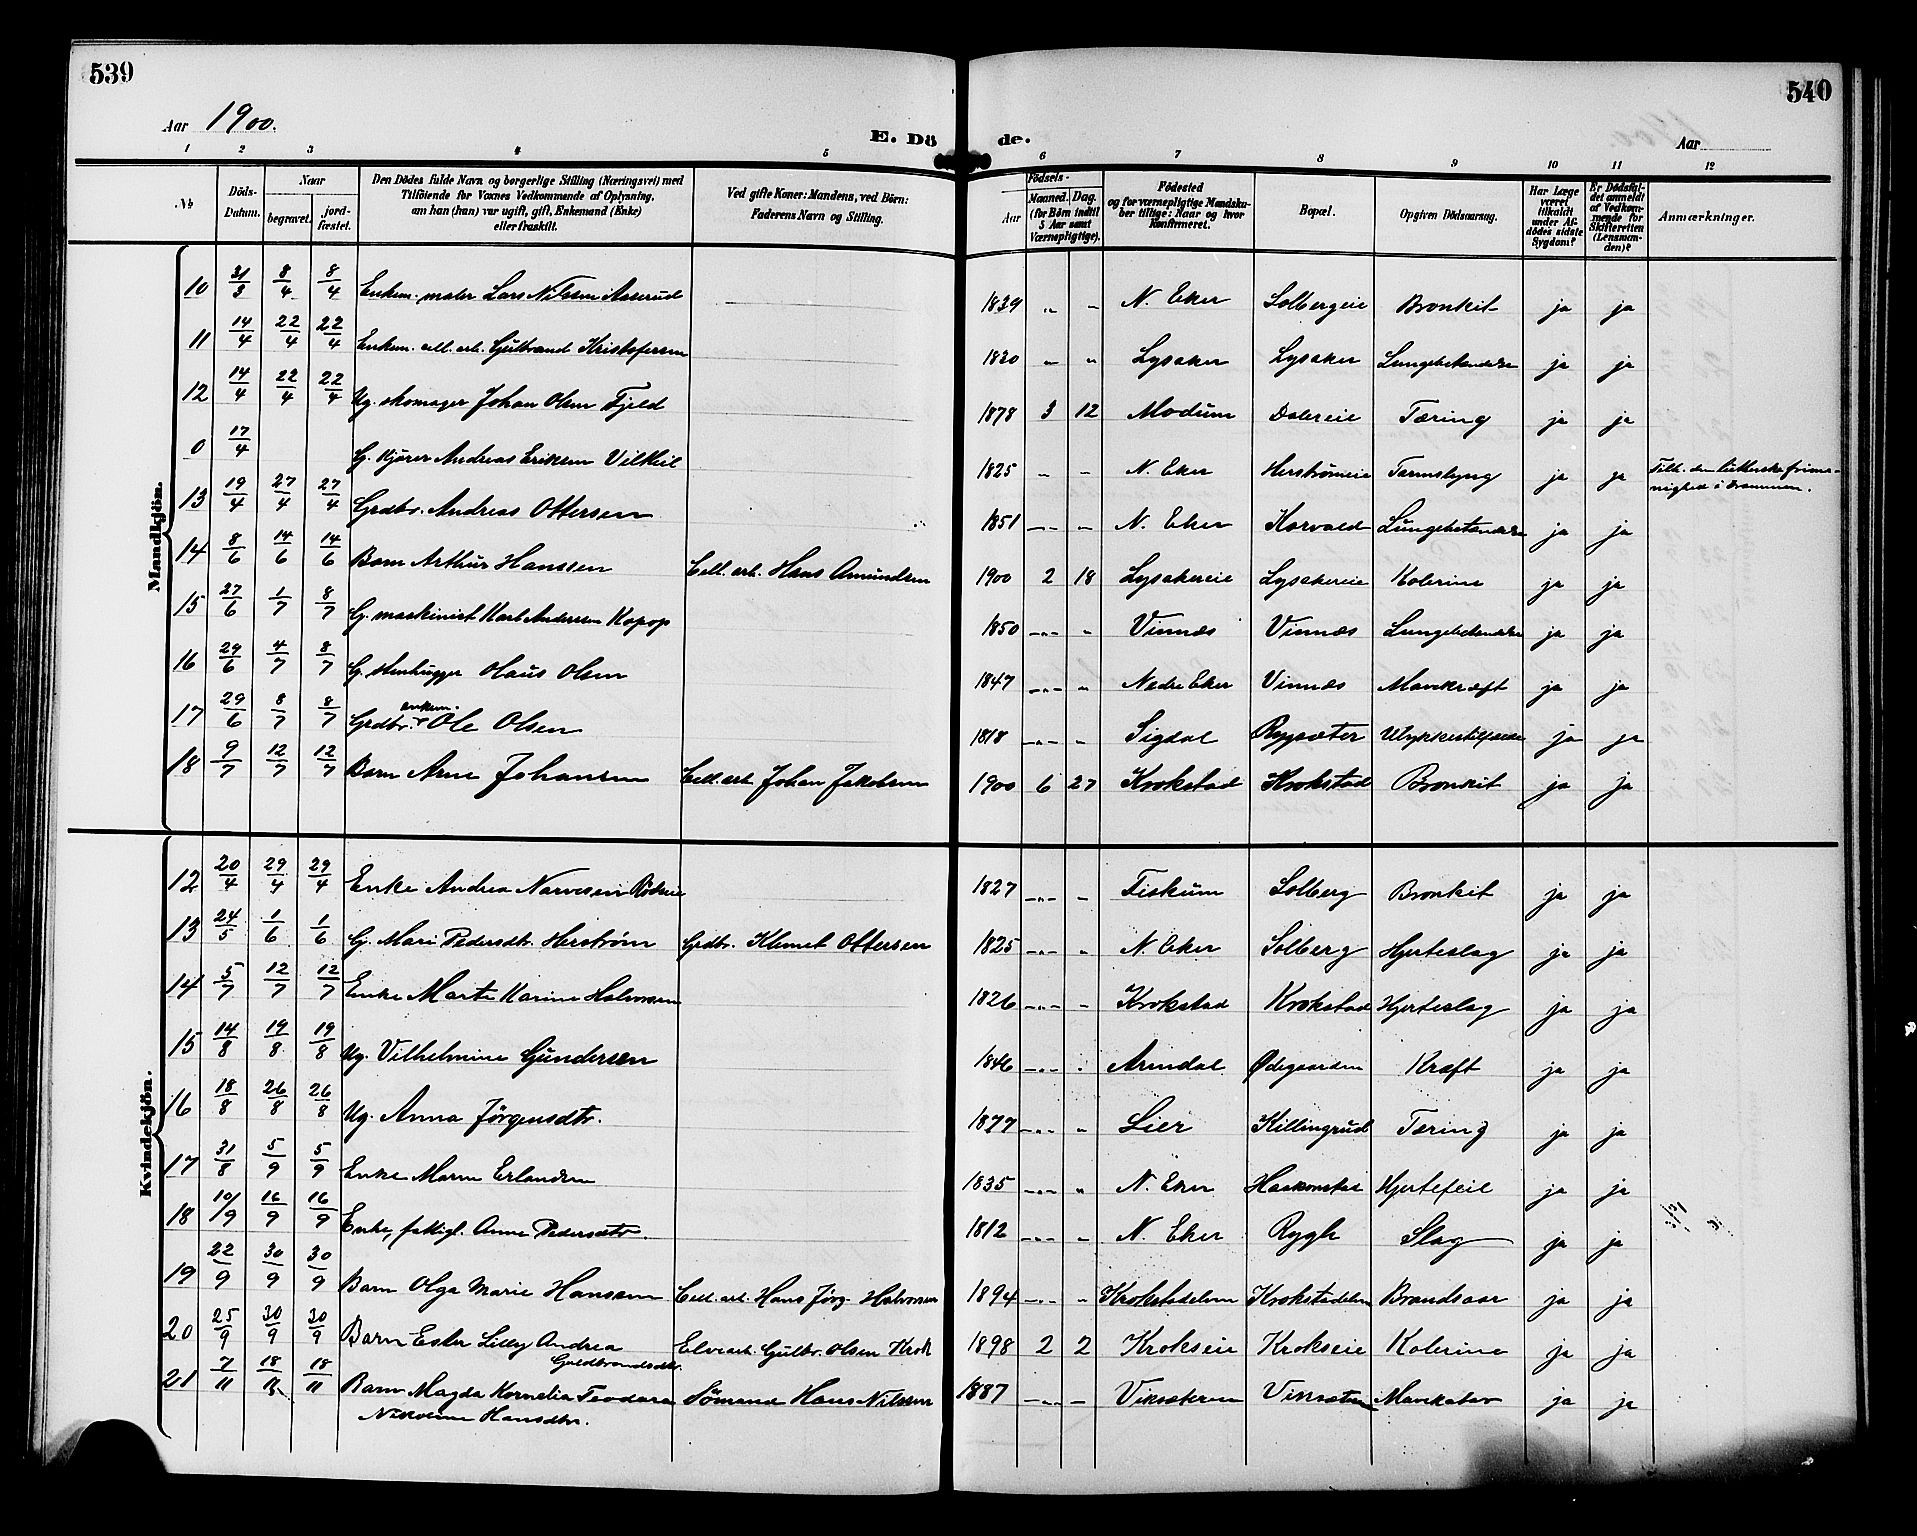 539
540
Aar 1900.
E. Dö de.
Aar
1 2 3 4 5 6 7 8 9 10 11 12
No
Döds-Datum.
Naar
begravet.
jord-fæstet.
Den Dödes fulde Navn og borgerlige Stilling (Næringsvei) med
Tilföiende for Voxnes Vedkommende af Oplysning,
om han (hun) var ugift, gift, Enkemand (Enke)
eller fraskilt.
Ved gifte Koner: Mandens, ved Börn:
Faderens Navn og Stilling.
Födsels-
Aar
Maaned. Dag.
(for Börn indtil
5 Aar samt
Værnepligtige).
Födested
og for værnepligtige Mandska-
ber tillige: Naar og hvor
konfirmeret.
Bopæl.
Opgiven Dödsaarsag.
Har Læge
været
tilkaldt
under Af-
dödes sidste
Sygdom?
Er Dödsfal-
det anmeldt
af Vedkom-
mende for
Skifteretten
(Lensman-
den)?
Anmærkninger.
Mandkjön.
10 31/3 8/4 8/4 Enkem. maler Lars Nilsen Aaserud 1839 " " N. Eker Solbergeie Bronkit ja ja
11 14/4 22/4 22/4 Enkem. cell. arb. Gulbrand Kristofersen 1820 " " Lysaker Lysaker Lungebetændelse ja ja
12 14/4 22/4 22/4 Ug. skomager Johan Olsen Fjeld 1878 3 12 Modum Dalereie Tæring ja ja
0 17/4 G. kjører Andreas Eriksen Vilkeie 1825 " " N. Eker Herstrømeie Tarmslyng ja ja Tilh. den lutherske frime-
nighed i Drammen.
13 19/4 27/4 27/4 Grdbr. Andreas Ottersen 1851 " " N. Eker Korvald Lungebetændelse ja ja
14 8/6 14/6 14/6 Barn Arthur Hanssen Cell. arb. Hans Amundsen 1900 2 18 Lysakereie Lysakereie Kolerine ja ja
15 27/6 1/7 8/7 G. maskinist Karl Andersen Kopop 1850 " " Vinnæs Vinnæs Lungebetændelse ja ja
16 29/6 4/7 8/7 G. stenhugger Olaus Olsen 1847 " " Nedre Eker Vinnæs Mavekræft ja ja
17 29/6 8/7 8/7 Grdbr. enkem. Ole Olsen 1818 " " Sigdal Rygsæter Ulykkestilfælde ja ja
18 9/7 12/7 12/7 Barn Arne Johansen Cell. arb. Johan Jakobsen 1900 6 27 Krokstad Krokstad Bronkit ja ja
Kvindekjön.
12 20/4 29/4 29/4 Enke Andrea Narvesen 1827 " " Fiskum Solberg Bronkit ja ja
13 24/5 1/6 1/6 G. Mari Pedersdtr. Herstrøm Grdbr. Klemet Ottersen 1825 " " N. Eker Solberg Hjerteslag ja ja
14 5/7 12/7 12/7 Enke Marte Karine Halvorsen 1826 " " Krokstad Krokstad Hjerteslag ja ja
15 14/8 19/8 19/8 Ug. Vilhelmine Gundersen 1846 " " Arendal Ødegaarden Kræft ja ja
16 18/8 26/8 26/8 Ug. Anna Jørgensdtr. 1877 " " Lier Killingrud Tæring ja ja
17 31/8 5/9 5/9 Enke Maren Erlandsen 1835 " " N. Eker Hjertefeil ja ja
18 10/9 16/9 16/9 Enke, fattigl. Anne Pedersdtr. 1812 " " N. Eker Rygh Slag ja ja
19 22/9 30/9 30/9 Barn Olga Marie Hansen Cell. arb. Hans Jørg. Halvorsen 1894 " " Krokstadelven Krokstadelven Brandsaar ja ja
20 25/9 30/9 30/9 Barn Ester Lilly Andrea
Guldbrandsdtr. Elvearb. Gulbr. Olsen Krok 1898 2 2 Krokseie Krokseie Kolerine ja ja
21 7/11 18/11 18/11 Barn Magda Kornelia Teodora
Nikoline Hansdtr. Sømand Hans Nilssen 1887 " " Viksæteren Viksæteren Mavekatar ja ja